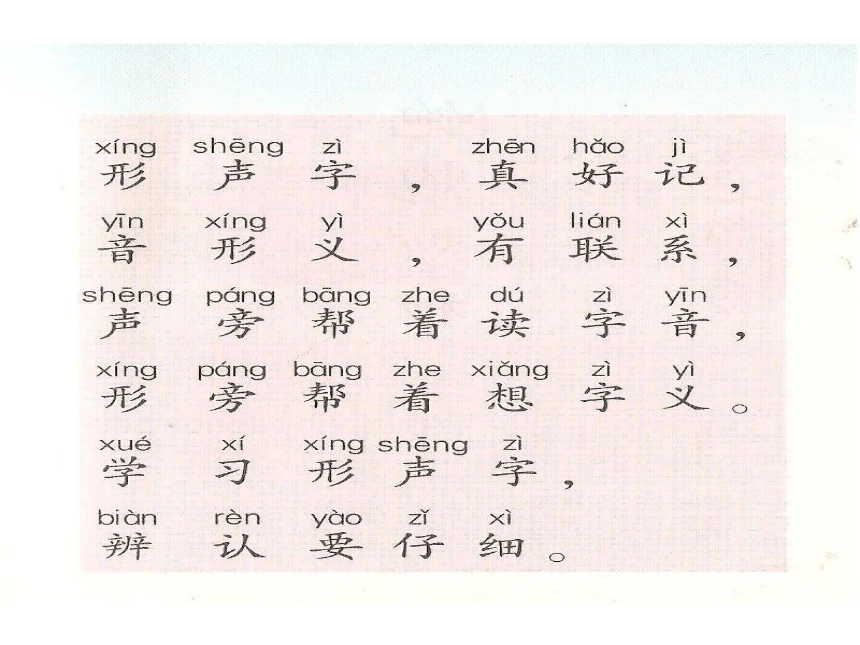 xíng shēng zì zhēn hǎo jì
形声字，真好记，
yīn xíng yì yǒu lián xì
音形义，有联系，
shēng páng bāng zhe dú zì yīn
声旁帮着读字音，
xíng páng bāng zhe xiǎng zì yì
形旁帮着想字义。
xué xí xíng shēng zì
学习形声字，
biàn rèn yào zǐ xì
辨认要仔细。